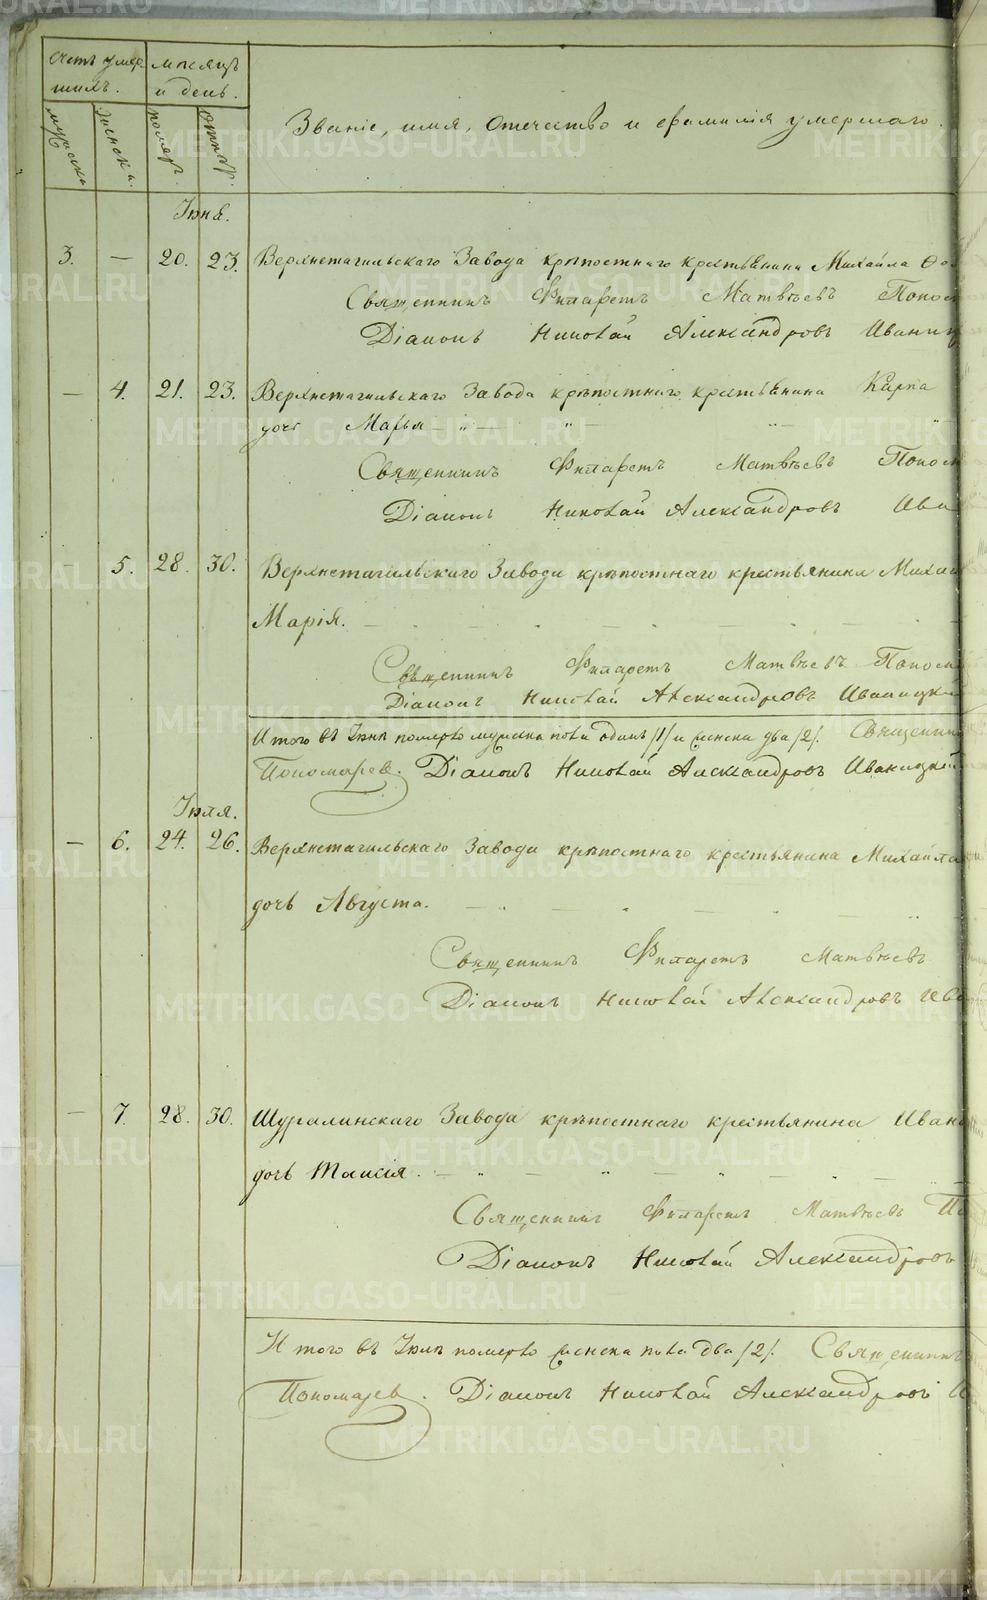 Счетъ умер- мѣсяцъ
шихъ. и день.
Званіе, имя, отечество и фамилія умершаго.
мужска женска. помер. отпѣв.
Іюнѣ.
3. — 20. 23. Верхнетагильскаго Завода крѣпостнаго крестьянина Михайла
Священникъ Филаретъ Матвѣевъ Поном
Діаконъ Николай Александровъ Иваниц
— 4. 21. 23. Верхнетагильскаго Завода крѣпостнаго крестьянина Карпа
дочь Марья — " — " —
Священникъ Филаретъ Матвѣевъ Поном
Діаконъ Николай Александровъ Ива
— 5. 28. 30. Верхнетагильскаго Завода крѣпостнаго крестьянина Михаи
Марія. —
Священникъ Филаретъ Матвѣевъ Поном
Діаконъ Николай Александровъ Иваницк
Итого въ Іюнѣ померло мужска пола одинъ /1/ и женска два /2/. Священни
Пономаревъ. Діаконъ Николай Александровъ Иваницкій
Іюля.
— 6. 24. 26. Верхнетагильскаго Завода крѣпостнаго крестьянина Михайла
дочь Августа. —
Священникъ Филаретъ Матвѣевъ
Діаконъ Николай Александровъ Ива
— 7. 28. 30. Шуралинскаго Завода крѣпостнаго крестьянина Иван
дочь Таисія. — " — " —
Священникъ Филаретъ Матвѣевъ По
Діаконъ Николай Александровъ
Итого въ Іюлѣ померло женска пола два /2/. Священникъ
Пономаревъ. Діаконъ Николай Александровъ И
METRIKI.GASO-URAL.RU